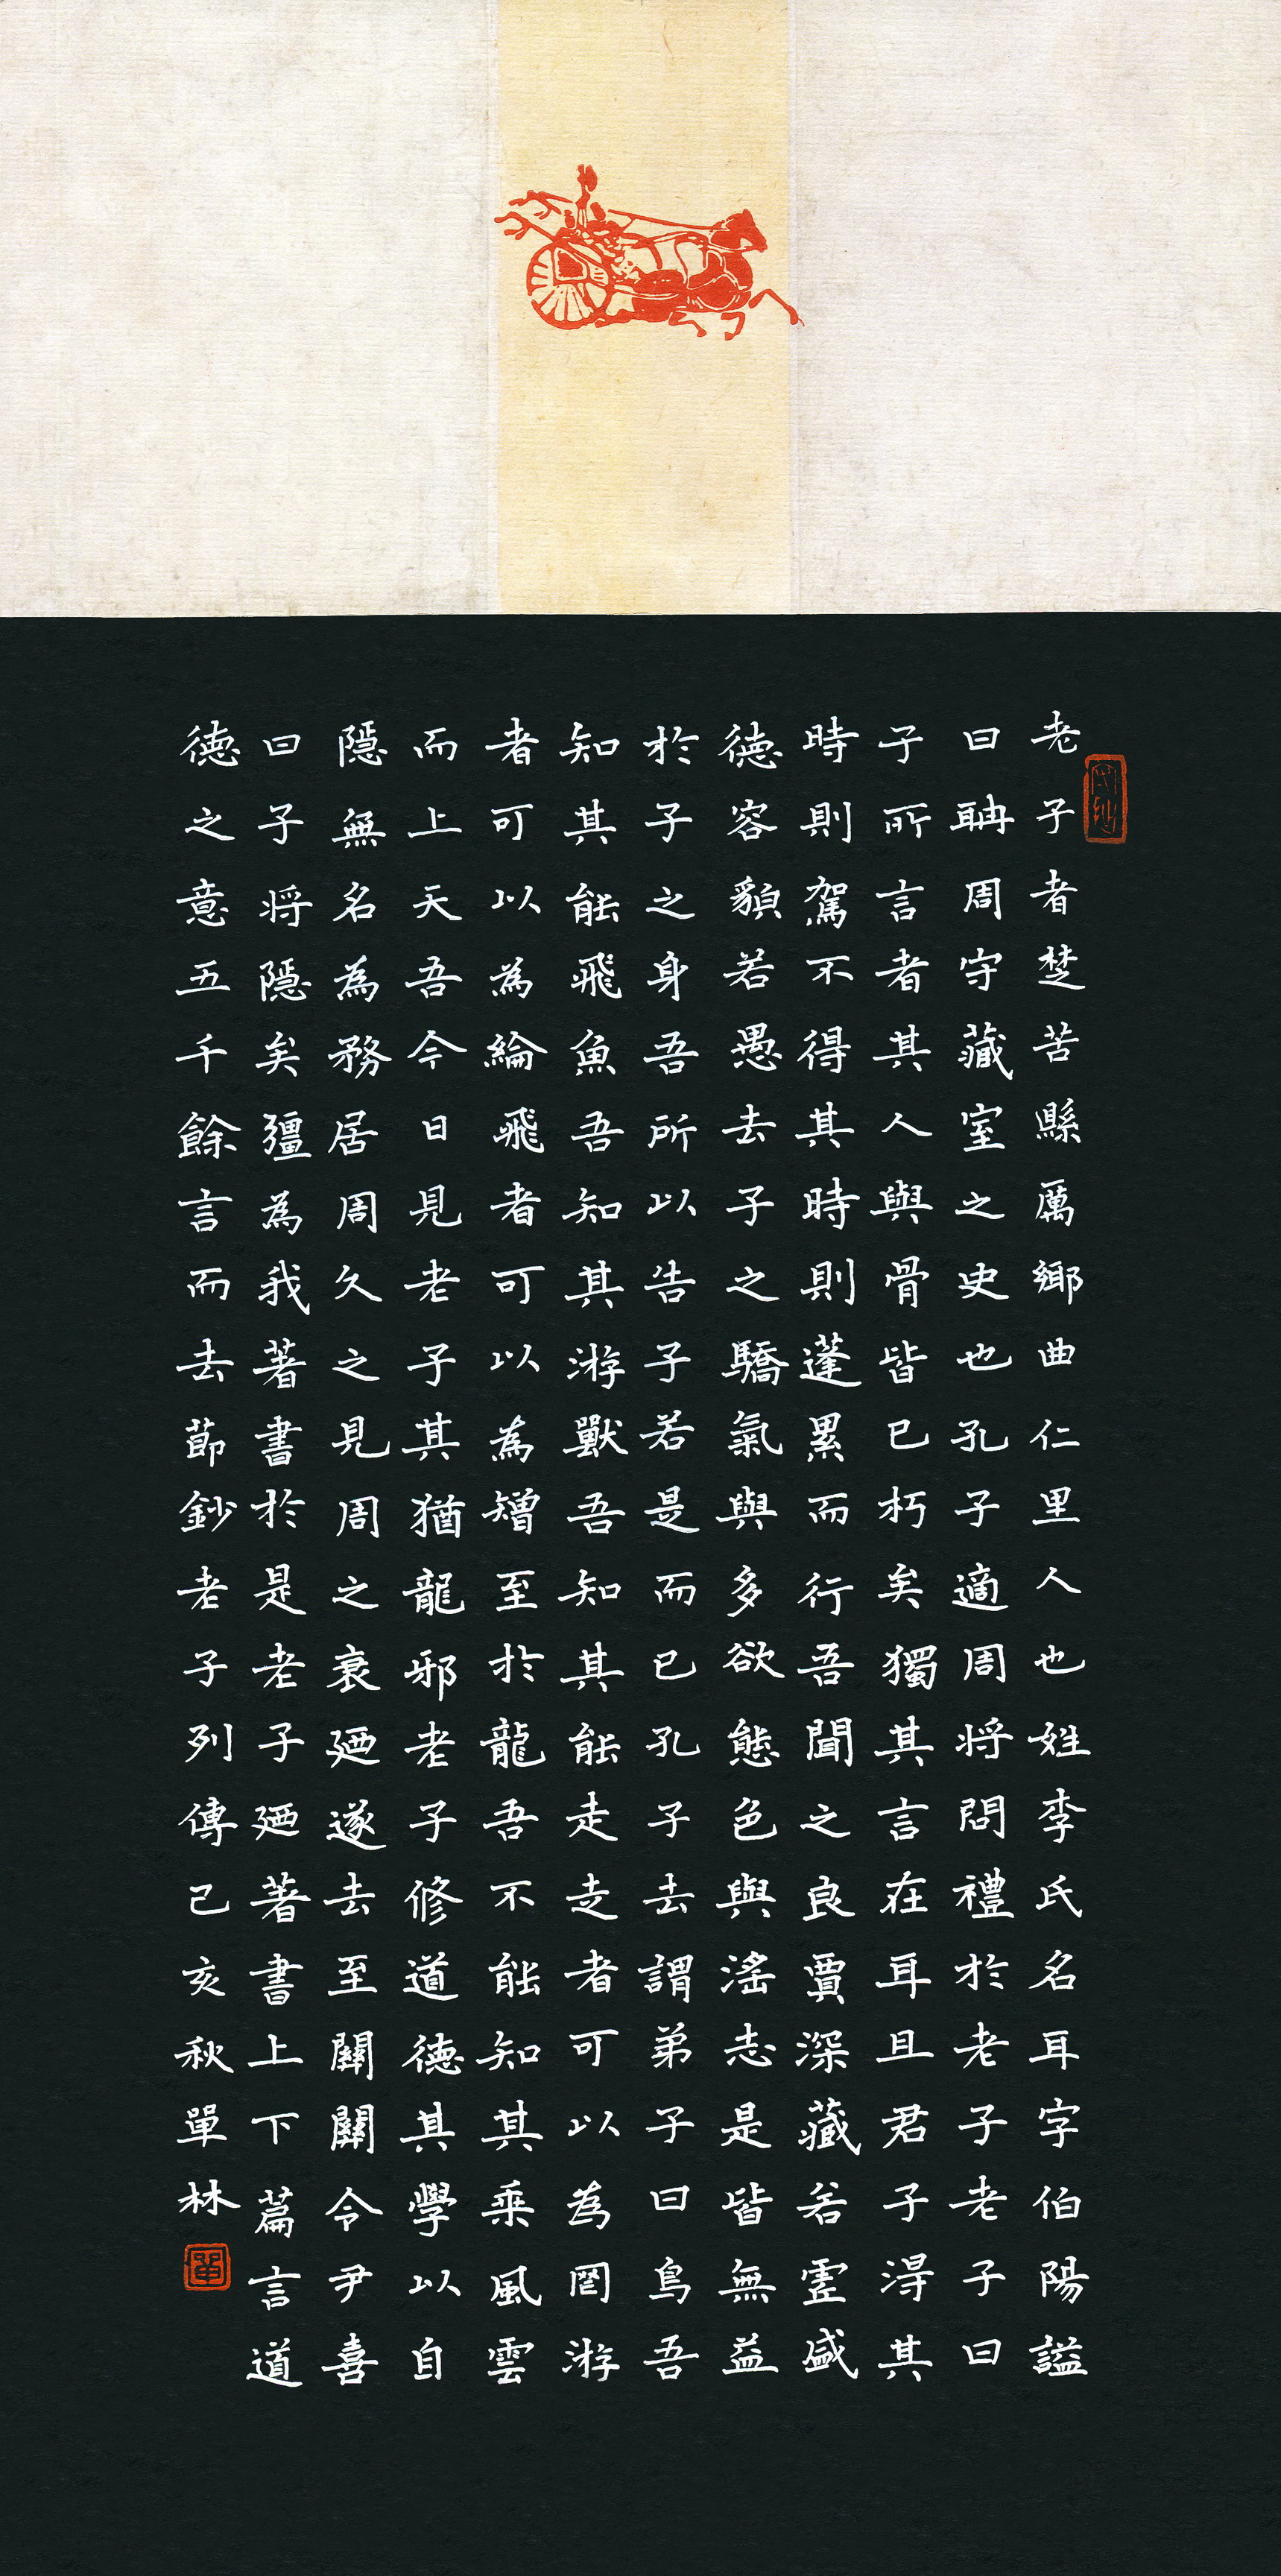 老子者楚苦縣厲鄉曲仁里人也姓李氏名耳字伯陽謚
曰聃周守藏室之史也孔子適周將問禮於老子老子曰
子所言者其人與骨皆已朽矣獨其言在耳且君子得其
時則駕不得其時則蓬累而行吾聞之良賈深藏若虛盛
德容貌若愚去子之驕氣與多欲態色與淫志是皆無益
於子之身吾所以告子若是而已孔子去謂弟子曰鳥吾
知其能飛魚吾知其游獸吾知其能走走者可以為罔游
者可以為綸飛者可以為矰至於龍吾不能知其乘風雲
而上天吾今日見老子其猶龍邪老子修道德其學以自
隱無名為務居周久之見周之衰廼遂去至關關令尹喜
曰子將隱矣彊為我著書於是老子廼著書上下篇言道
德之意五千餘言而去節鈔老子列傳己亥秋單林
單